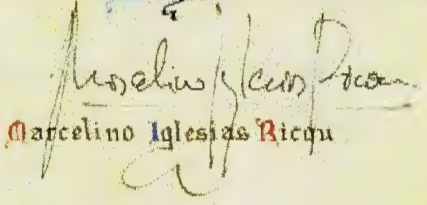 Marcelino Iglesias Ricou
Marcelino Iglesias Ricqu